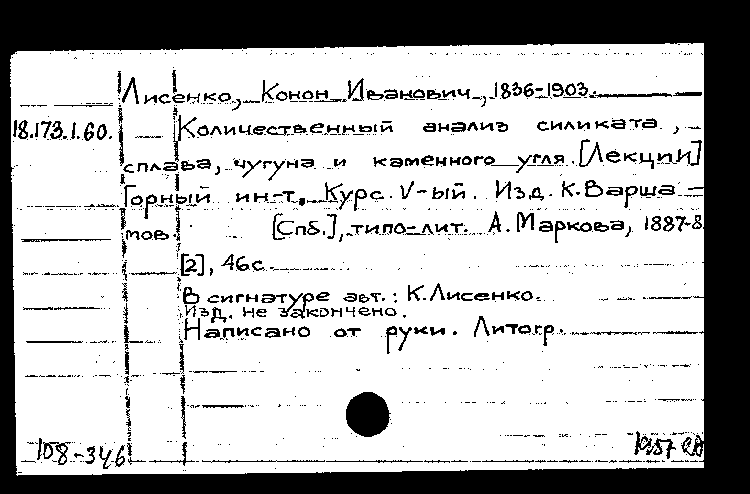 Лисенко, Конон Иванович, 1836-1903.
18.173.1.60. Количественный анализ силиката,
сплава, чугуна и каменного угля. [Лекции]
Горный ин-т. Курс V-ый. Изд. К. Варша-
мов. [Спб.], типо-лит. А. Маркова, 1887-8
[2], 46с.
В сигнатуре авт.: К. Лисенко.
Изд. не закончено.
Написано от руки. Литогр.
108-346